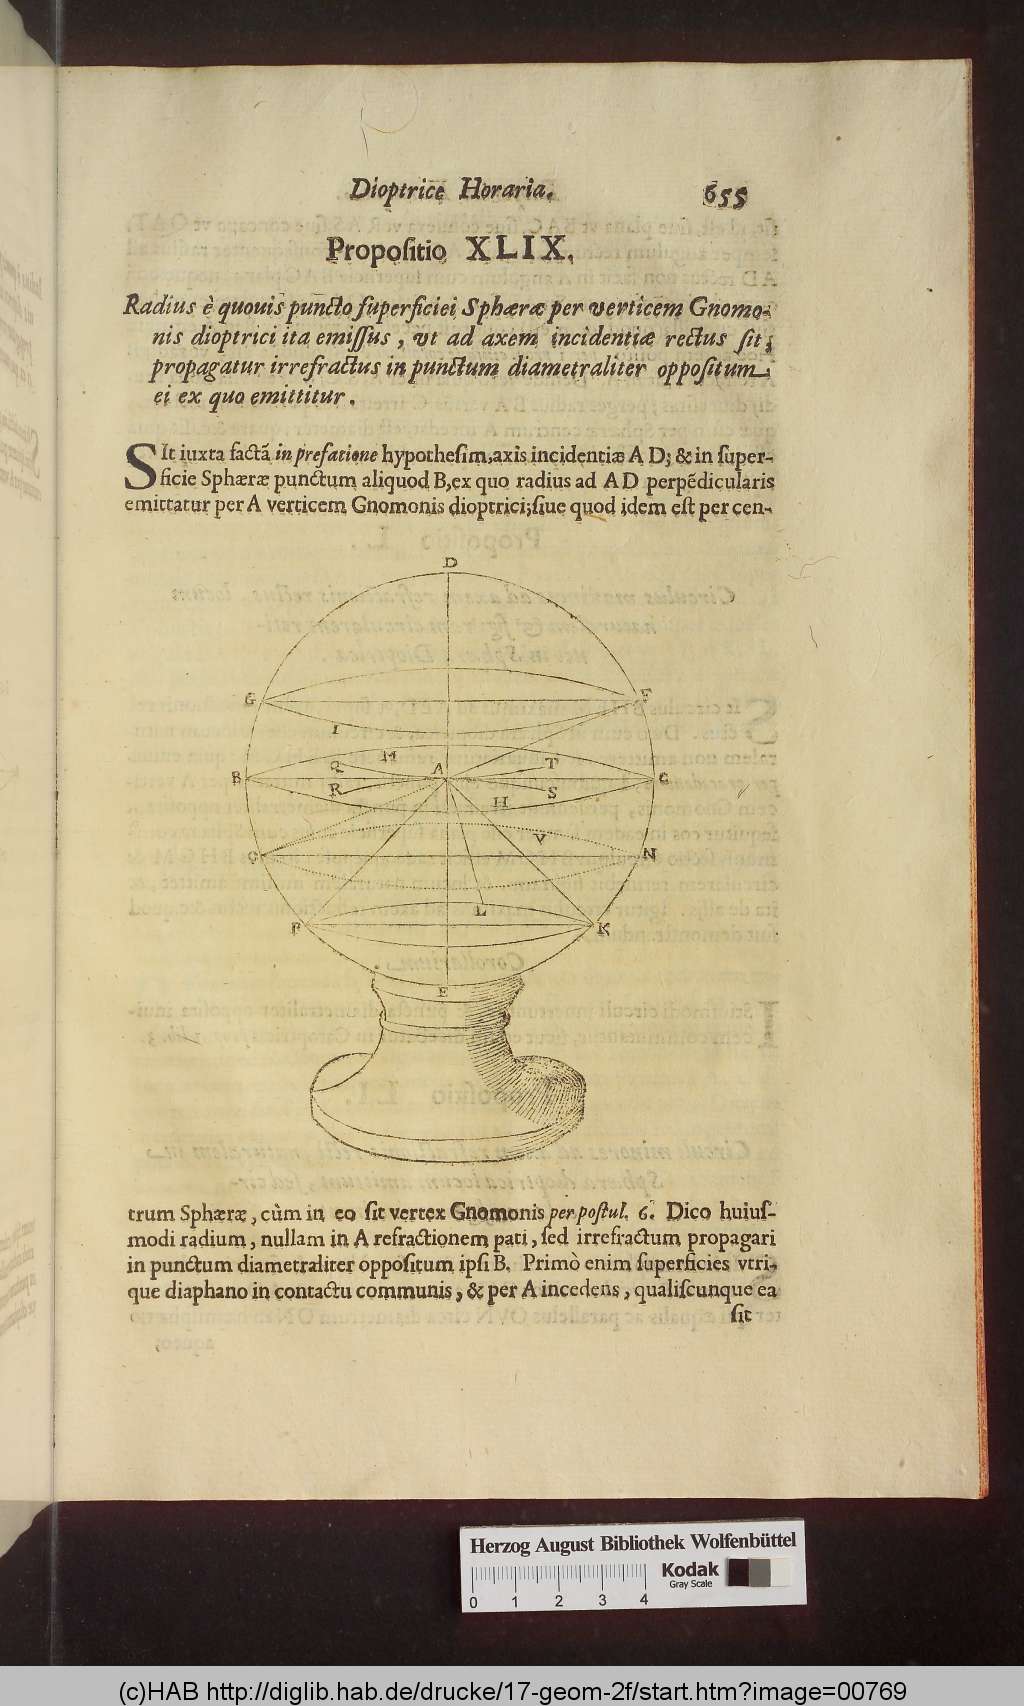 Dioptrice Horaria. 655
Propositio XLIX.
Radius è quouis puncto superficiei Sphæræ per verticem Gnomo-
nis dioptrici ita emissus, vt ad axem incidentiæ rectus sit;
propagatur irrefractus in punctum diametraliter oppositum
ei ex quo emittitur.
SIt iuxta factã in præfatione hypothesim, axis incidentiæ A D; & in super-
ficie Sphæræ punctum aliquod B, ex quo radius ad A D perpẽdicularis
emittatur per A verticem Gnomonis dioptrici; siue quod idem est per cen-
D
G F
I
M
B Q A T C
R S
H
O V N
L
P K
E
trum Sphæræ, cùm in eo sit vertex Gnomonis per postul. 6. Dico huius-
modi radium, nullam in A refractionem pati, sed irrefractum propagari
in punctum diametraliter oppositum ipsi B. Primò enim superficies vtri-
que diaphano in contactu communis, & per A incedens, qualiscunque ea
sit
Herzog August Bibliothek Wolfenbüttel
Kodak
Gray Scale
0 1 2 3 4
(c)HAB http://diglib.hab.de/drucke/17-geom-2f/start.htm?image=00769